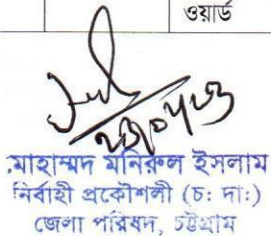 ওয়ার্ড
মোহাম্মদ মনিরুল ইসলাম
নির্বাহী প্রকৌশলী (চ: দা:)
জেলা পরিষদ, চট্টগ্রাম